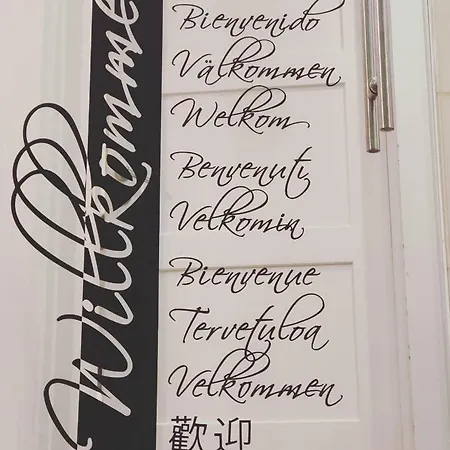 Willkomme
Bienvenido
Välkommen
Welkom
Benvenuti
Velkomin
Bienvenue
Tervetuloa
Velkommen
歡迎